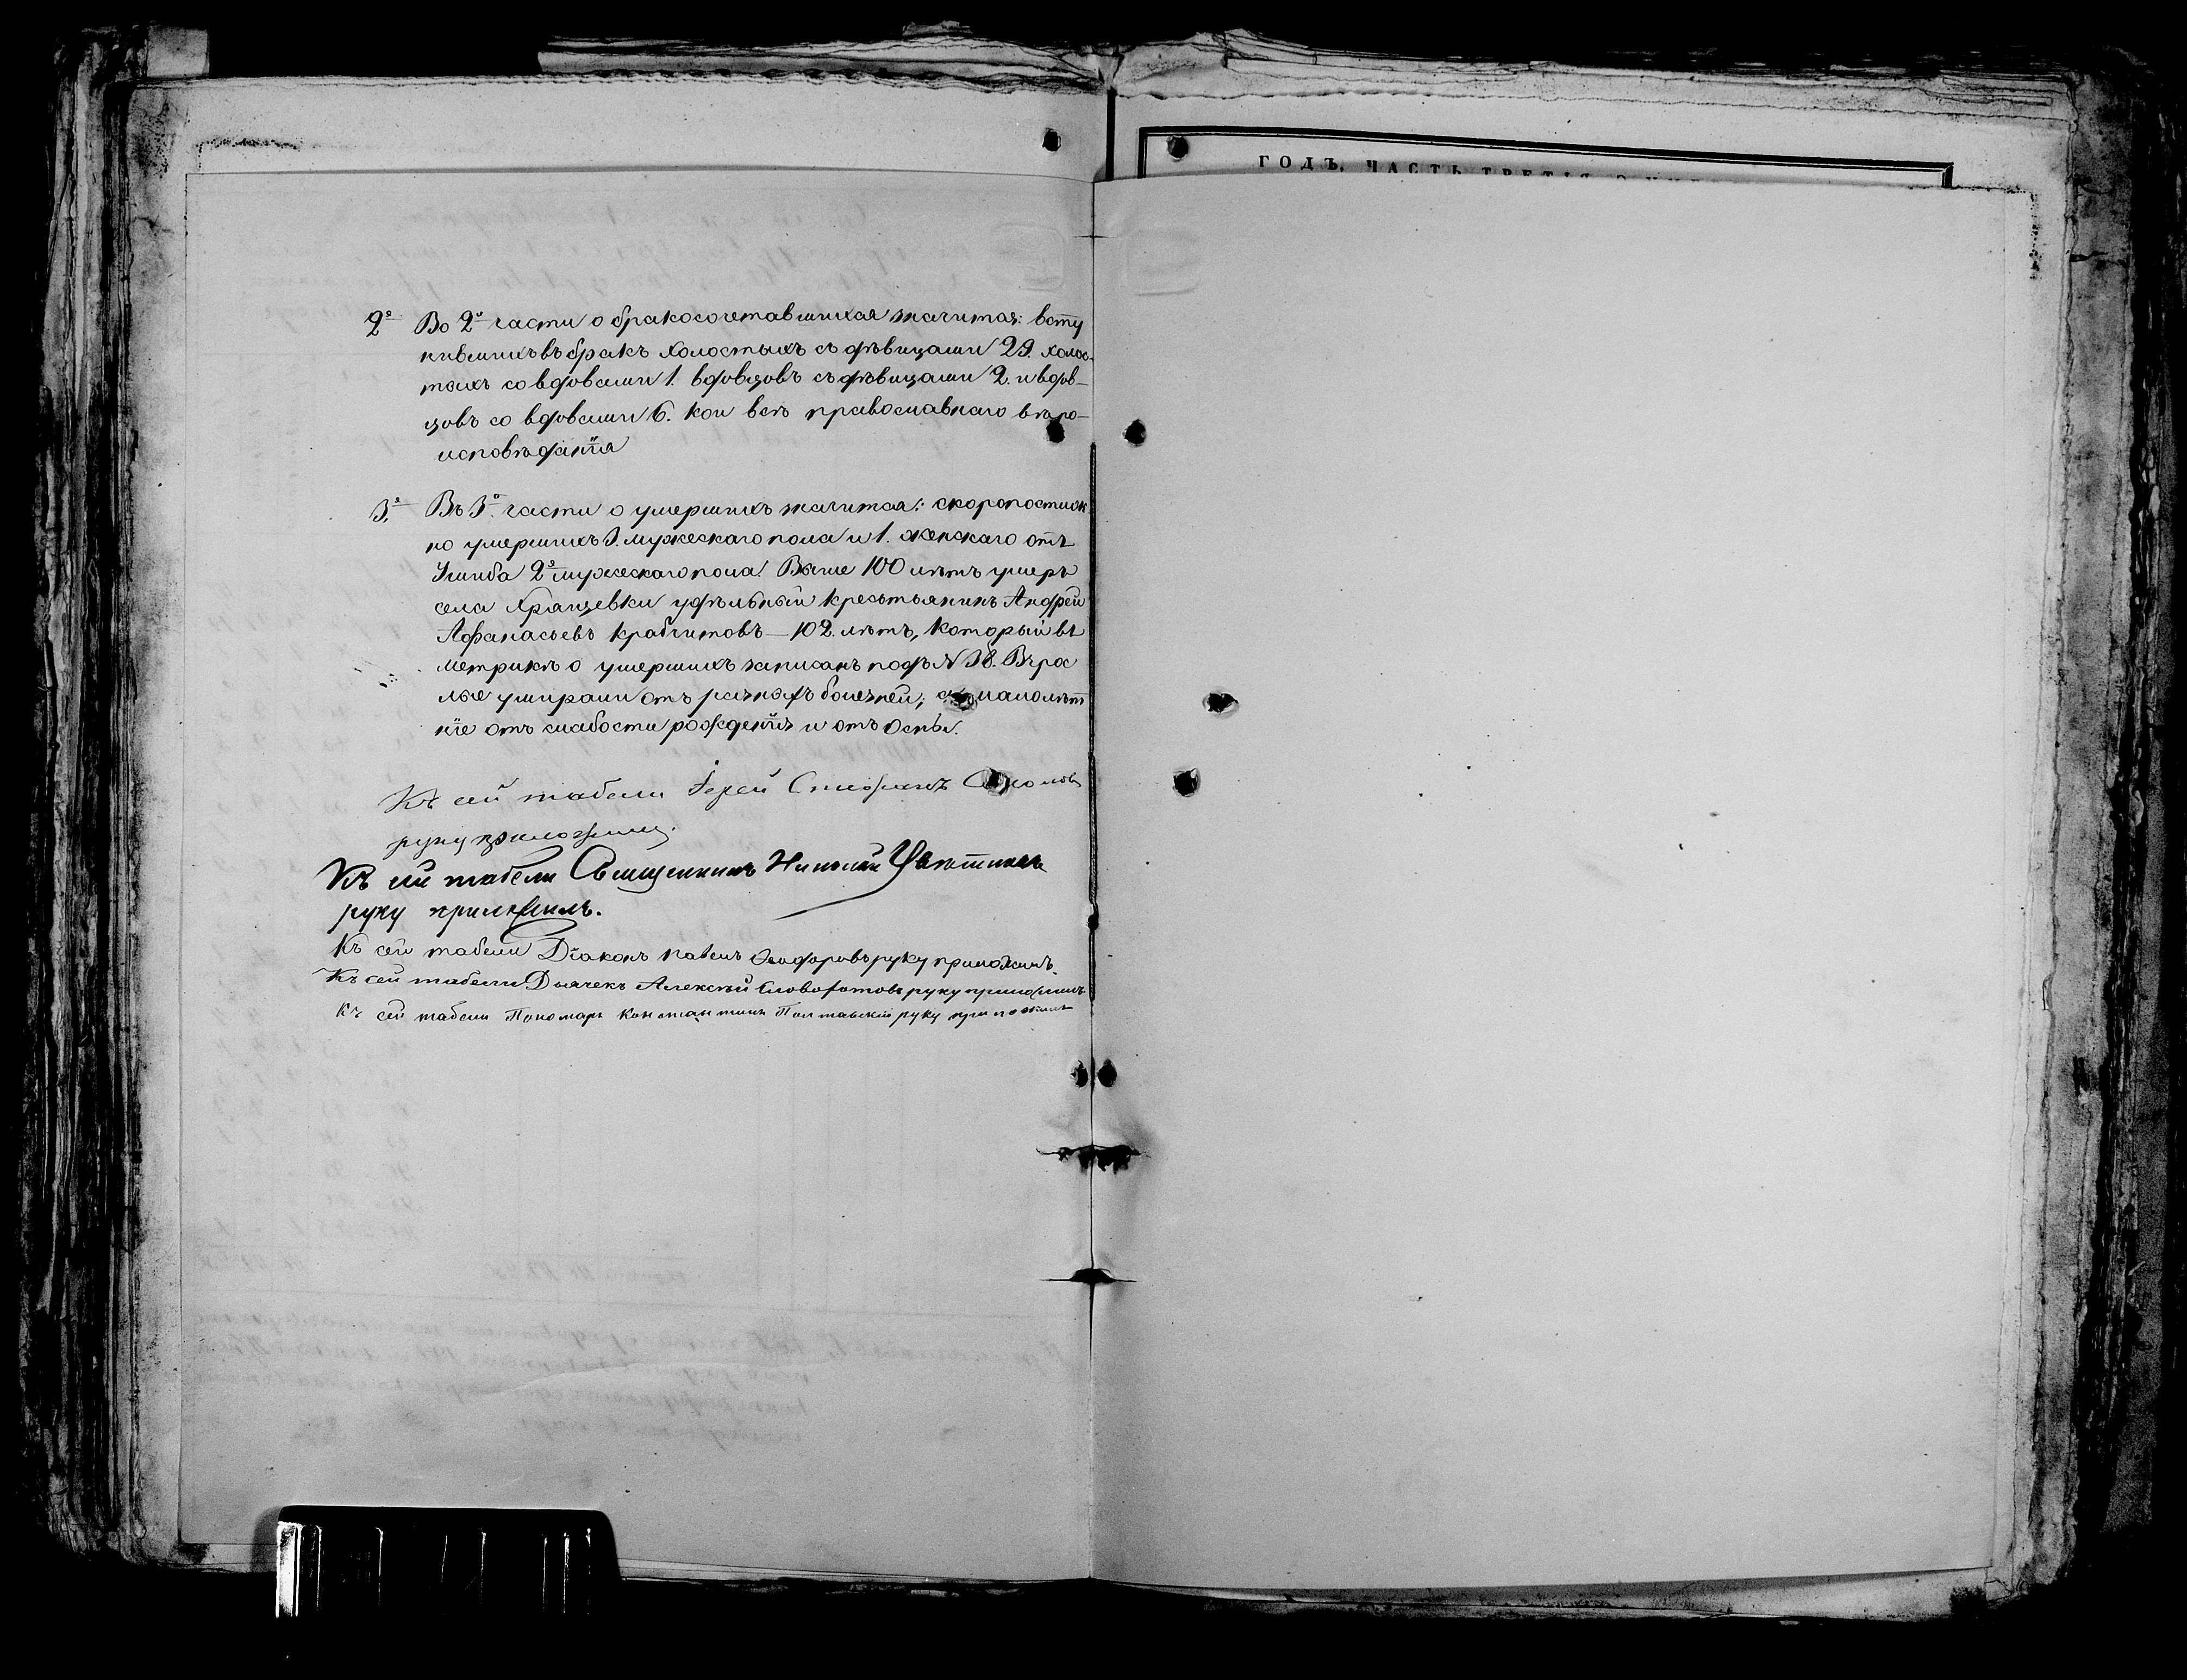 ГОДЪ, ЧАСТЬ ТРЕТІЯ
2е Во 2й части о бракосочетавшихся значится: всту
пившихъ въ бракъ холостыхъ съ дѣвицами 29. холос-
тыхъ со вдовами 1. вдовцовъ съ дѣвицами 2. и вдов-
цовъ со вдовами 6. кои всѣ православнаго вѣро-
исповѣданія
3е Въ 3й части о умершихъ значится: скоропостиж
но умершихъ 3. мужескаго пола и 1. женскаго отъ
Ушиба 2е мужескаго пола. Выше 100 лѣтъ умеръ
села удѣльный крестьянинъ Андрей
Афанасьевъ — 102. лѣтъ, который въ
метрикѣ о умершихъ записанъ подъ № 38. Взрос
лые умирали отъ разныхъ болезней; а малолѣт
ніе отъ слабости рожденія и отъ Оспы.
Къ сей табели Іерей
руку приложилъ.
Къ сей табели Священникъ Николай Цвѣтковъ
руку приложилъ.
Къ сей табели Діаконъ Павелъ Ѳеодоровъ руку приложилъ.
Къ сей табели Дьячекъ Алексѣй Словохотовъ руку приложилъ.
Къ сей табели Пономарь Константинъ Полтавскій руку приложилъ